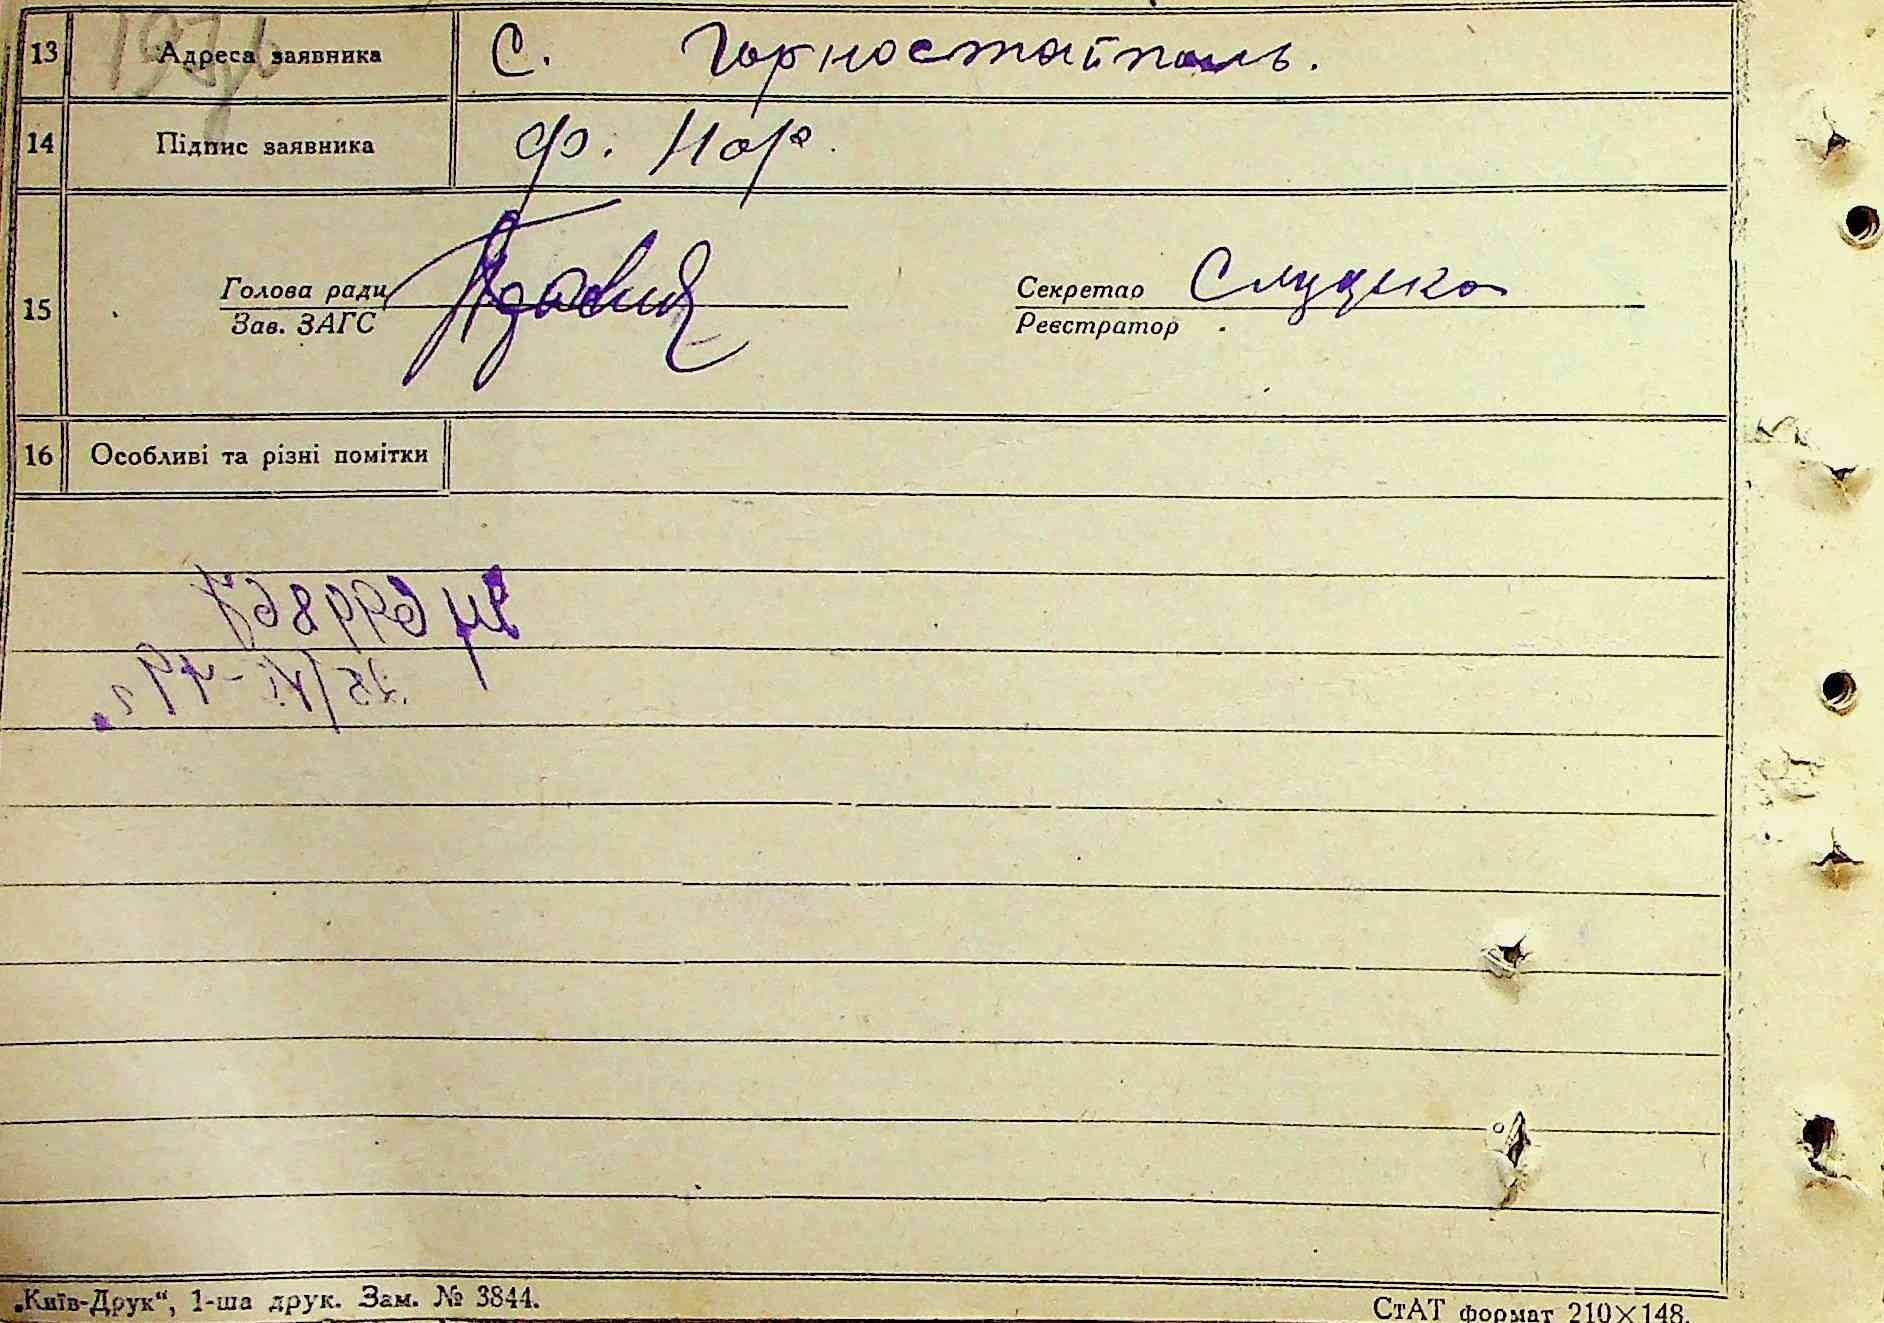 13 Адреса заявника С. Горностайполь.
14 Підпис заявника Ф. Нор.
15 Голова ради Секретар Слуцька
Зав. ЗАГС Реєстратор
16 Особливі та різні помітки
„Київ-Друк“, 1-ша друк. Зам. № 3844.
СтАТ формат 210×148.